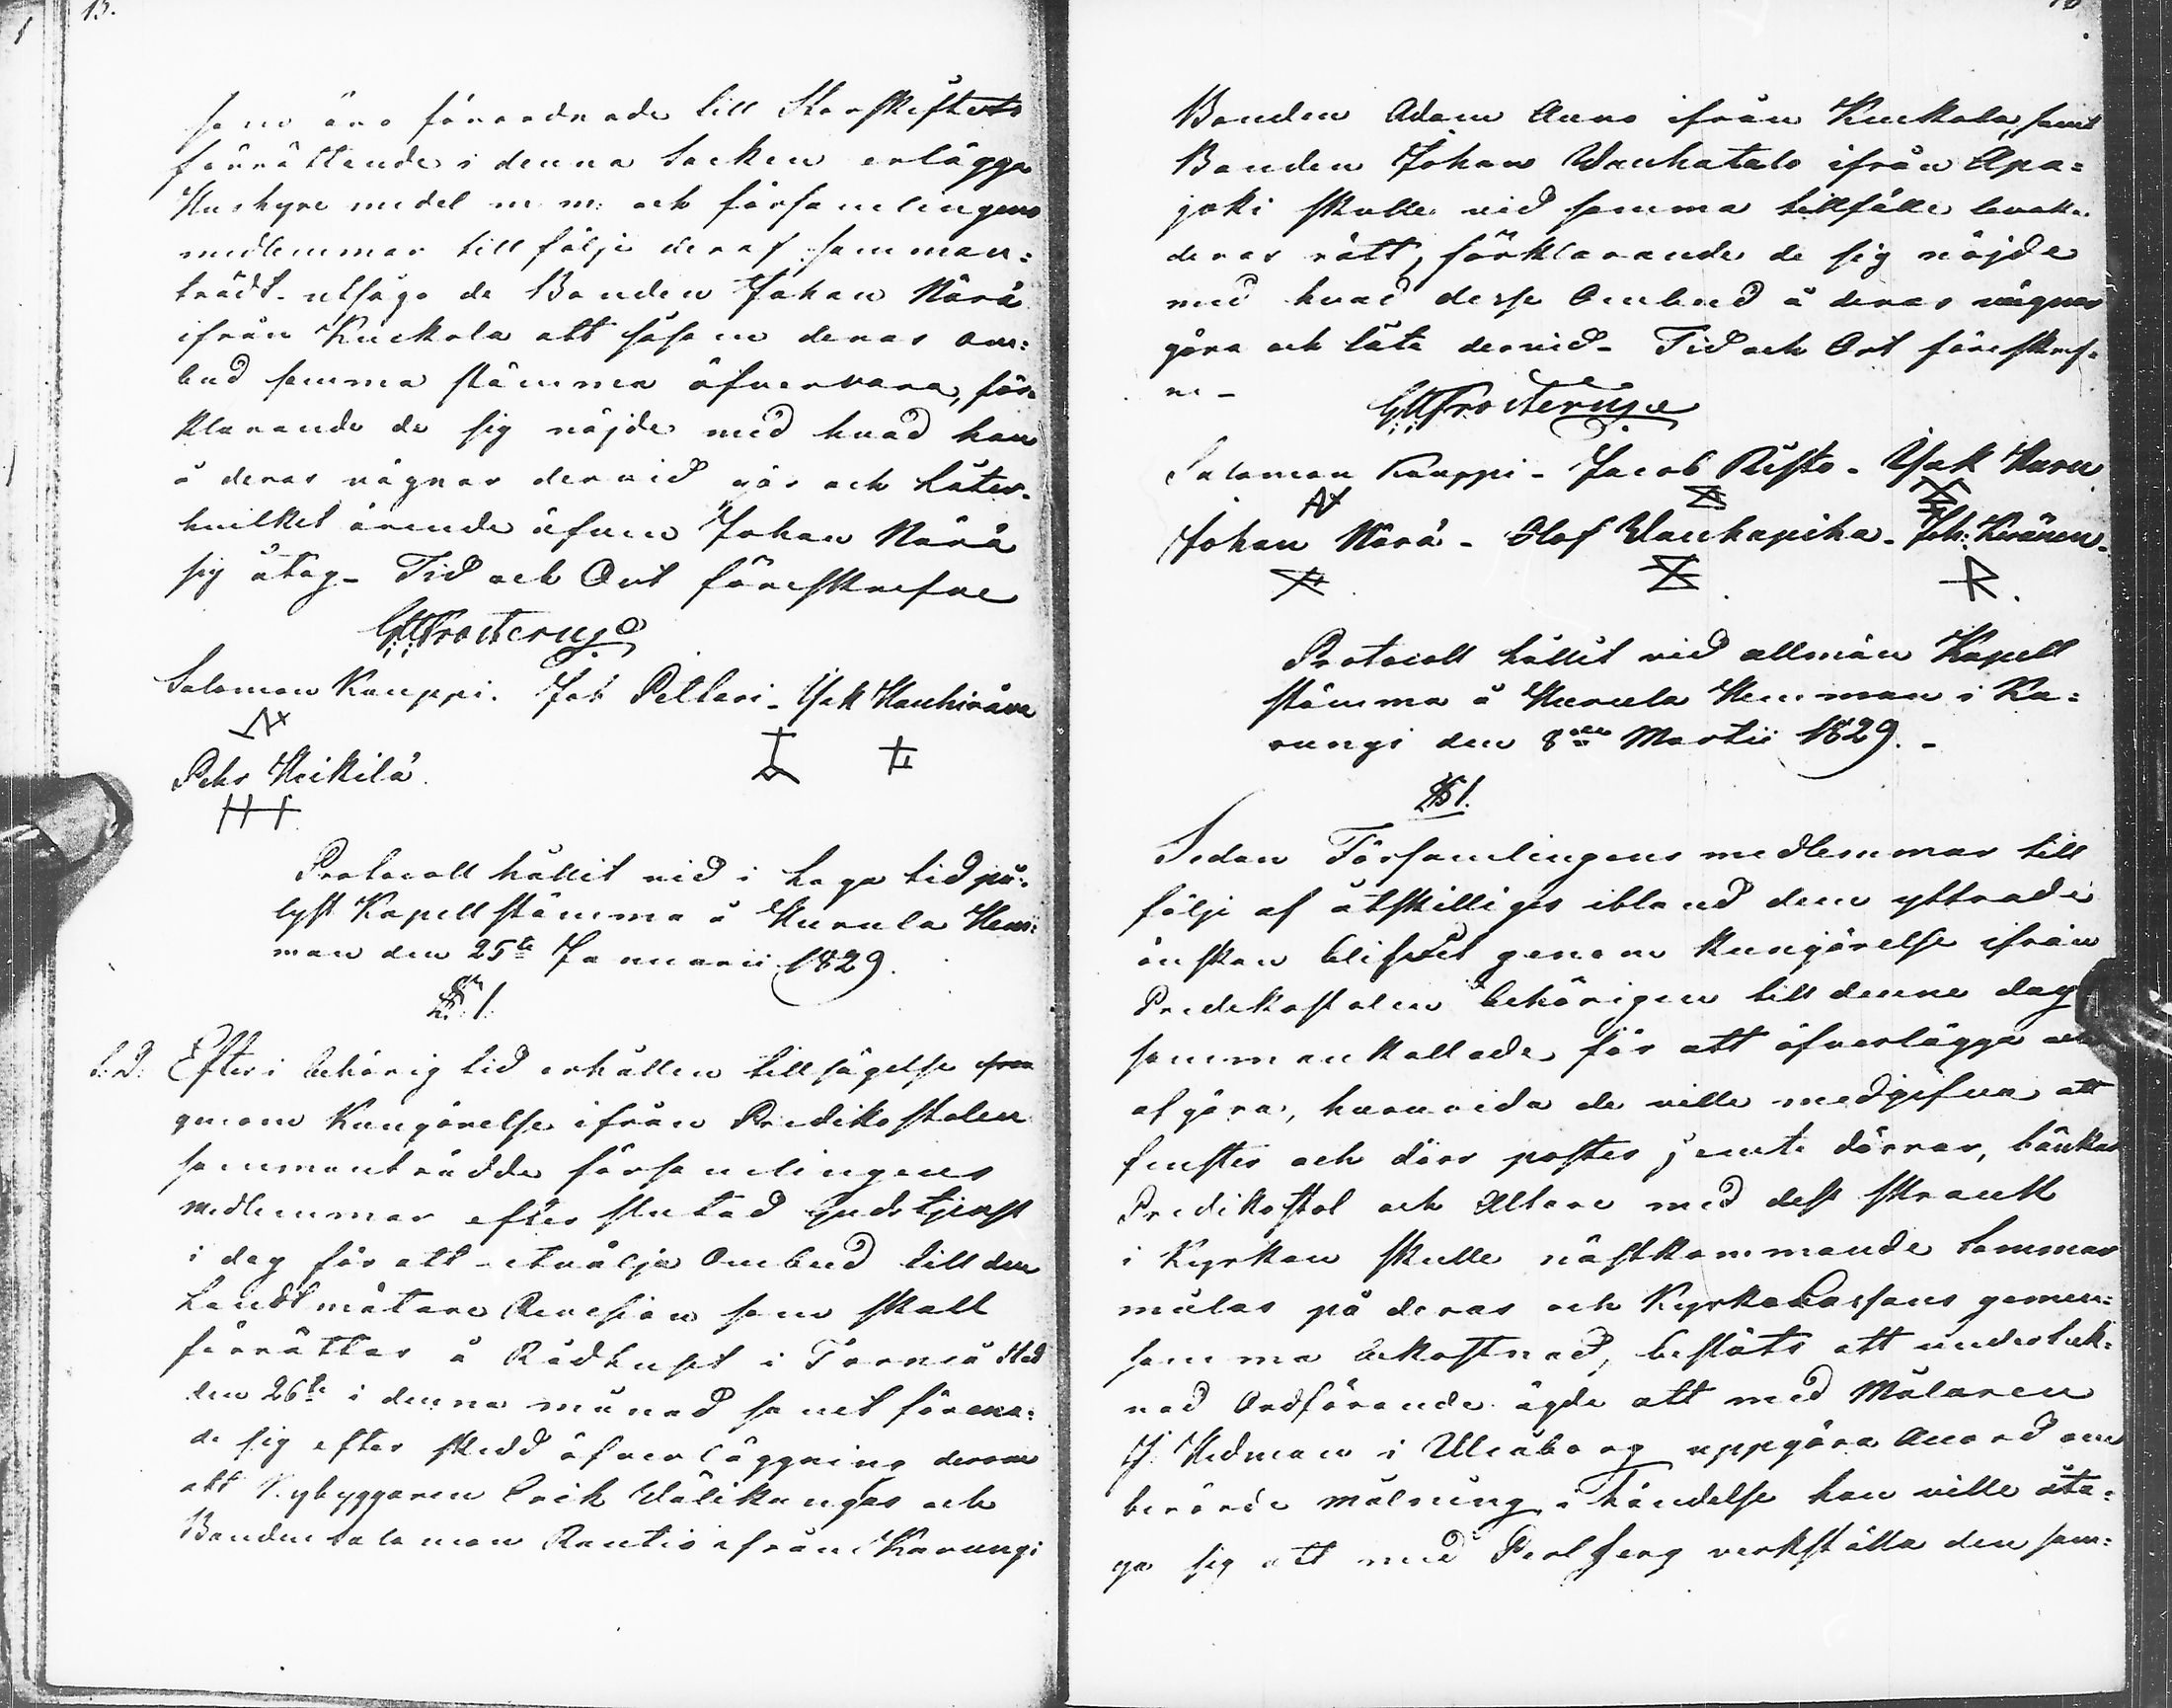 15.
som äro förordnade till Storskiftets
förrättende i denna Socken erlägga
Hushyre medel m. m. och församlingens
medlemmar till följe deraf samman=
trädt utsågo de Bonden Johan Närä
ifrån Kuckola att såsom deras om=
bud samma stämma öfvervara, för=
klarande de sig nöjde med hvad han
å deras vägnar dervid gör och låter
hvilket ärende äfven Johan Närä
sig åtog. Tid och Ort föreskrefne
Salomon Kauppi. Joh Pellari. Isak Hanhivaara
Pehr Heikilä.
Protocoll hållit vid i laga tid på=
lyst Kapellstämma å Hurula Hem=
man den 25te Januarii 1829.
§ 1.
S.D. Efter i behörig tid erhållen tillsägelse
genom Kungörelse ifrån Predikostolen
sammanträdde församlingens
medlemmar efter slutad Gudstjenst
i dag för att utvälja Ombud till den
Landtmätare Revision som skall
förrättas å Rådhuset i Torneå Stad
den 26te i denna månad samt förena=
de sig efter skedd öfverläggning derom
att Nybyggaren Erik Välikangas och
Bonden Salomon Rautio ifrån Karungi
Bonden Adam Auno ifrån Kuckola, samt
Bonden Johan Wanhatalo ifrån Apa=
joki skulle vid samma tillfälle bevaka
deras rätt, förklarande de sig nöjde
med hvad desse Ombud å deras vägnar
göra och låta dervid. Tid och Ort föreskref=
ne.
Salomon Kauppi. Jacob Risto. Isak Huru
Johan Närä. Olof Wanhapiha. Joh: Keränen.
Protocoll hållit vid allmän Kapell
stämma å Hurula Hemman i Ka=
rungi den 8de Martii 1829.
§ 1.
Sedan Församlingens medlemmar till
följe af åtskilliges ibland dem yttrade
önskan blifvit genom Kungörelse ifrån
Predikostolen behörigen till denne dag
sammankallade för att öfverlägga och
afgöra, huruvida de ville medgifva att
fenster och dörr poster jemte dörrar, bänkar
Predikostol och Altare med dess skrank
i Kyrkan skulle nästkommande Sommar
målas på deras och Kyrko Cassans gemen=
samma bekostnad, beslöts att underteck=
nad Ordförande ägde att med Målaren
J. Hedman i Uleåborg uppgöra Accord om
berörde målning i händelse han ville åta=
ga sig att med Perlfärg verkställa den sam=